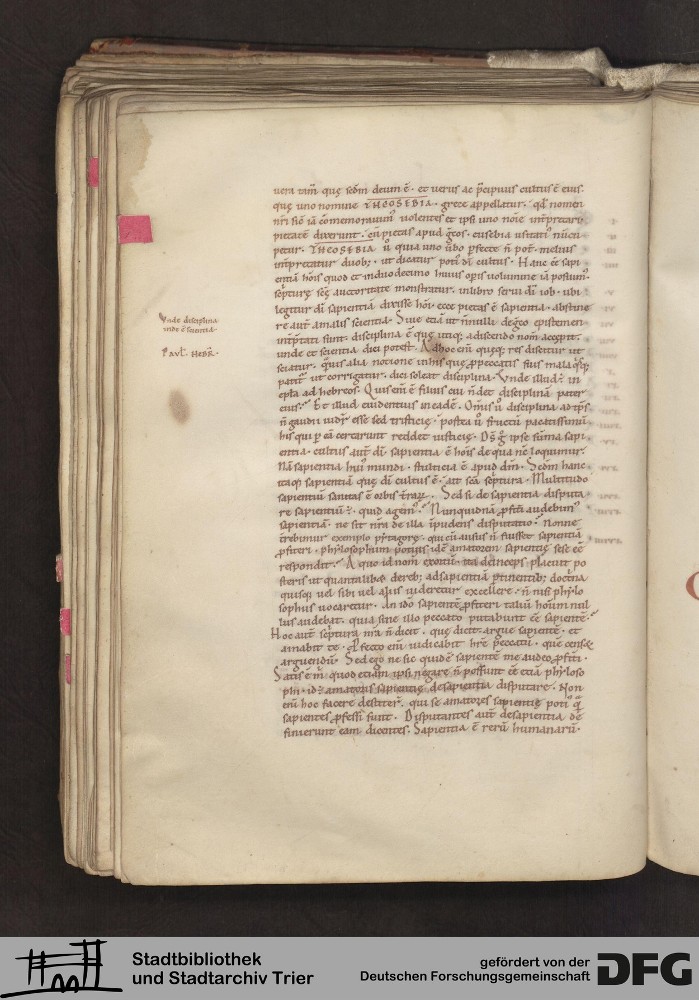 vera tam̄ quę scd̄m deum ē · et verus ac p̄cipuus cultus ē eius ·
quę uno nomine THEOSEBIA · grece appellatur · qd̄ nomen
nr̄i sic̄ iā cōmemorauim᷒ volentes et ipsi uno noīe int̄pretari ·
pietatē dixerunt · cū pietas apud gr̄cos · eusebia usitati᷒ nūcu
petur · THEOSEBIA ů quia uno ůbo ꝑfecte n̄ pot̄ · melius
int̄pretatur duob; · ut dicatur poti᷒ dī cultus · Hanc eē sapi
entiā hōis quod et in duodecimo huius opīs volumine iā posuim᷒ ·
scripturę scę̄ auctoritate monstratur · in libro serui dī iob · ubi
legitur dī sapientiā dixisse hōi · ecce pietas ē sapientia · abstine
re aut̄ a malis scientia · Siue etiā ut n̄nulli de gr̄co epistemen
int̄ptati sunt · disciplina ē quę utiq; a discendo nom̄ accepit ·
unde et scientia dici potest · Ad hoc enī quęq; res discitur ut
sciatur · q̄uis alia notione in his quę ꝓ peccatis suis mala q̄sq;
patit᷒ ut corrigatur · dici soleat disciplina · Vnde illud ē in
epl̄a ad hebreos · Quis eni ē filius cui n̄ det disciplinā pater
eius · Et illud euidentius in eadē · Om̄is ů disciplina ad tp̄s
n̄ gaudii uidet᷒ esse sed tristicię · postea ů fructū pacatissimū
his qui ꝑ eā certarunt reddet iusticię · Dş g̊ ipse sūma sapi
entia · cultus aut̄ dī sapientia ē hōis de qua nc̄ loquimur ·
Nā sapientia hui᷒ mundi · stulticia ē apud dm̄ · Scd̄m hanc
itaq; sapientiā quę dī cultus ē · ait scā sc̄ptura · Multitudo
sapientiū sanitas ē orbis t̄rarꝝ · Sed si de sapientia disputa
re sapientiū ē · quid agem᷒ · Nunquidnā ꝓfit̄i audebim᷒
sapientiā · ne sit nr̄a de illa īpudens disputatio · Nonne
t̄rebimur exemplo pytagorę · qui cū ausus n̄ fuisset sapientē
ꝓfiteri · phylosophum potius idē amatorem sapientię se eē
respondit · A quo id nom̄ exortū · ita deinceps placuit po
steris ut quantalibȝ de reb; ad sapientiā ptinentib; doct̄na
quisq; uel sibi uel aliis uideretur excellere · n̄ nisi phylo
sophus uocaretur · An ido sapientē ꝓfiteri taliū hoīum nul
lus audebat · quia sine illo peccato putabunt eē sapientē ·
Hoc aut̄ sc̄ptura nr̄a n̄ dicit · quę dicit · argue sapientē · et
amabit te · Ꝓfecto eni᷒ iudicabit hr̄e peccatū · quē censet
arguendū · Sed ego ne sic quidē sapientē me audeo ꝓfit̄i ·
Satis ē m̄ quod etiam ipsi negare n̄ possunt eē etiā phyloso
phi · id · amatoris sapientię de sapientia disputare · Non
enī hoc facere destiter̄ · qui se amatores sapientię poti᷒ q̄
sapientes ꝓfessi sunt · Disputantes aut̄ de sapientia de
finierunt eam dicentes · Sapientia ē rerū humanarū ·
Vnde disciplina
inde ē scientia ·
Pavl̄ · Hebr̄ ·
Stadtbibliothek
und Stadtarchiv Trier
gefördert von der
Deutschen Forschungsgemeinschaft
DFG